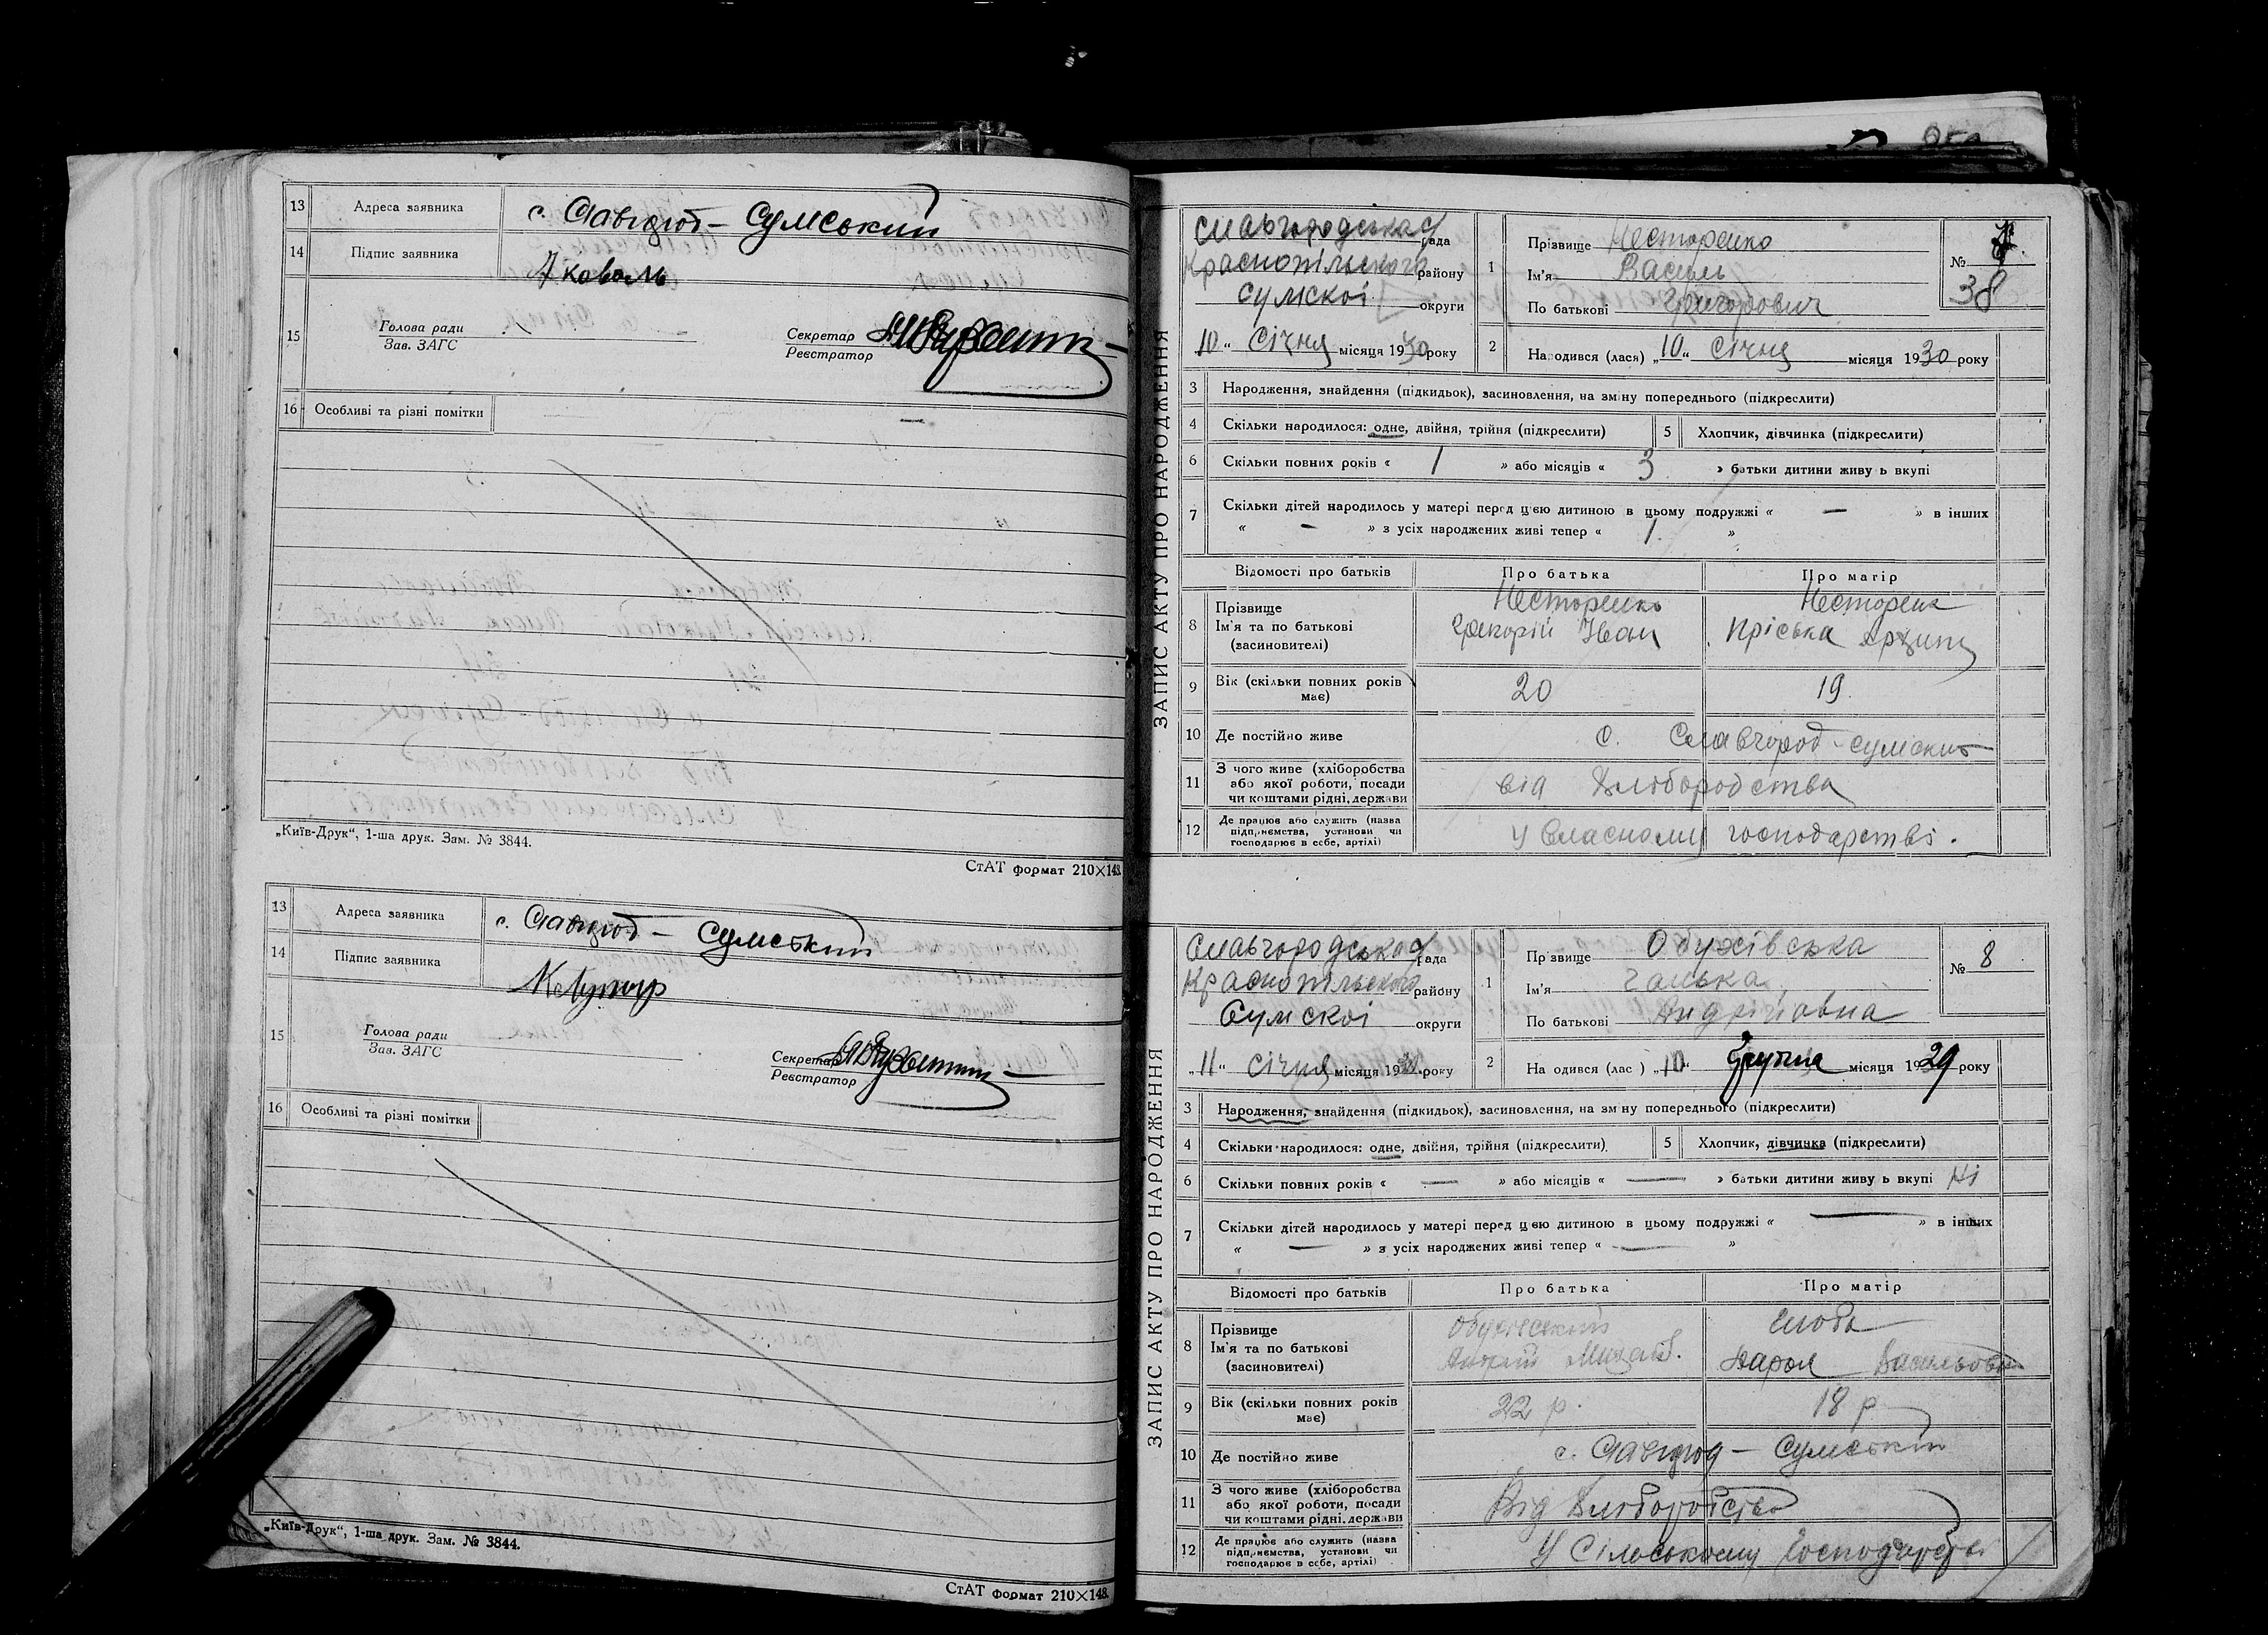 13 Адреса заявника с. Славгород – Сумський
14 Підпис заявника Коваль
15 Голова ради
Зав. ЗАГС
Секретар
Реєстратор
16 Особливі та різні помітки
„Київ-Друк“, 1-ша друк. Зам. № 3844.
СтАТ формат 210×148.
13 Адреса заявника с. Славгород – Сумський
14 Підпис заявника
15 Голова ради
Зав. ЗАГС
Секретар
Реєстратор
16 Особливі та різні помітки
„Київ-Друк“, 1-ша друк. Зам. № 3844.
СтАТ формат 210×148.
ЗАПИС АКТУ ПРО НАРОДЖЕННЯ
Славгородська рада
Краснопільского району
Сумскоі округи
„10“ Січня місяця 1930 року
1 Прізвище Несторенко
Ім'я Василь
По батькові Григорович
№ 38
2 Народився (лася) „10“ Січня місяця 1930 року
3 Народження, знайдення (підкидьок), засиновлення, на зміну попереднього (підкреслити)
4 Скільки народилося: одне, двійня, трійня (підкреслити)
5 Хлопчик, дівчинка (підкреслити)
6 Скільки повних років « 1 » або місяців « 3 » батьки дитини живу ь вкупі
7 Скільки дітей народилось у матері перед цією дитиною в цьому подружжі « — » в інших
« — » з усіх народжених живі тепер « 1 »
Відомості про батьків Про батька Про матір
8 Прізвище Несторенко
Ім'я та по батькові Григорій Іван Пріська
(засиновителі)
9 Вік (скільки повних років має) 20 19
10 Де постійно живе с. Славгород-Сумский
11 З чого живе (хліборобства
або якої роботи, посади
чи коштами рідні, держави
від Хлібородства
12 Де працює або служить (назва
підприємства, установи чи
господарює в себе, артілі)
у власному господарстві.
ЗАПИС АКТУ ПРО НАРОДЖЕННЯ
Славгородська рада
Краснопільского району
Сумскоі округи
„11“ Січня місяця 1930 року
1 Пр звище Обухівська
Ім'я Галька
По батькові Андрійовна
№ 8
2 На одився (лас ) „10“ Грудня місяця 1929 року
3 Народження, знайдення (підкидьок), засиновлення, на зм ну попереднього (підкреслити)
4 Скільки народилося: одне, двійня, трійня (підкреслити)
5 Хлопчик, дівчинка (підкреслити)
6 Скільки повних років « — » або місяців « — » батьки дитини живу ь вкупі Ні
7 Скільки дітей народилось у матері перед цією дитиною в цьому подружжі « — » в інших
« — » з усіх народжених живі тепер « — »
Відомості про батьків Про батька Про матір
8 Прізвище Обухівський
Ім'я та по батькові Андрій Михайл. Васильовна
(засиновителі)
9 Вік (скільки повних років має) 22 р. 18 р
10 Де постійно живе с. Славгород – Сумський
11 З чого живе (хліборобства
або якої роботи, посади
чи коштами рідні, держави
Від Хліборобства
12 Де працює або служить (назва
підприємства, установи чи
господарює в себе, артілі)
У Сільському господарстві